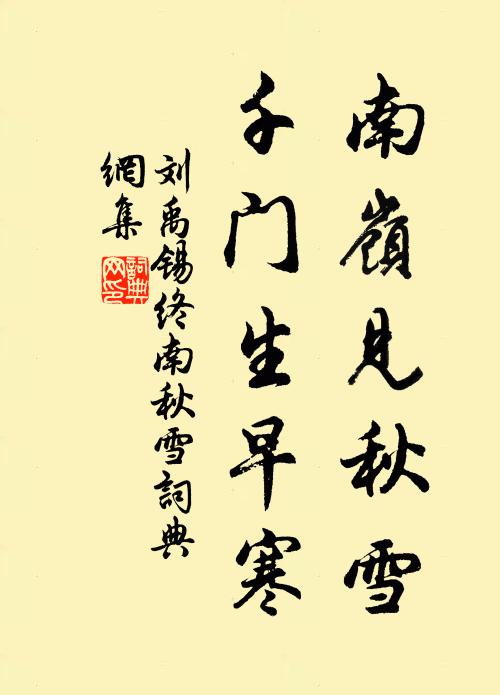 南嶺見秋雪
千门生早寒
刘禹锡终南秋雪詞典
網集
詞典
网印